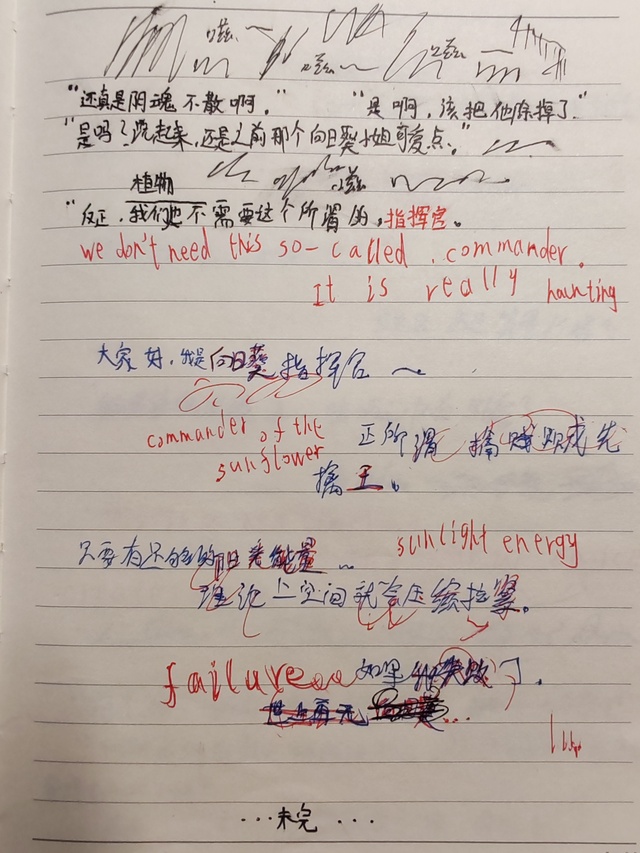 嗞 嗞 嗞
"还真是阴魂不散啊。" "是啊,该把他除掉了."
"是吗?说起来,还是之前那个向日葵小姐可爱点。"
嗞
植物
"反正,我们也不需要这个所谓的,指挥官。
we don't need this so-called, commander.
It is really haunting
大家好,我是向日葵指挥官
commander of the sunflower
正所谓 擒贼 先
擒王。
只要有足够的 能量
sunlight energy
理论上空间就会压缩拉紧。
failure 如果 失败了,
世上再无
...未完...